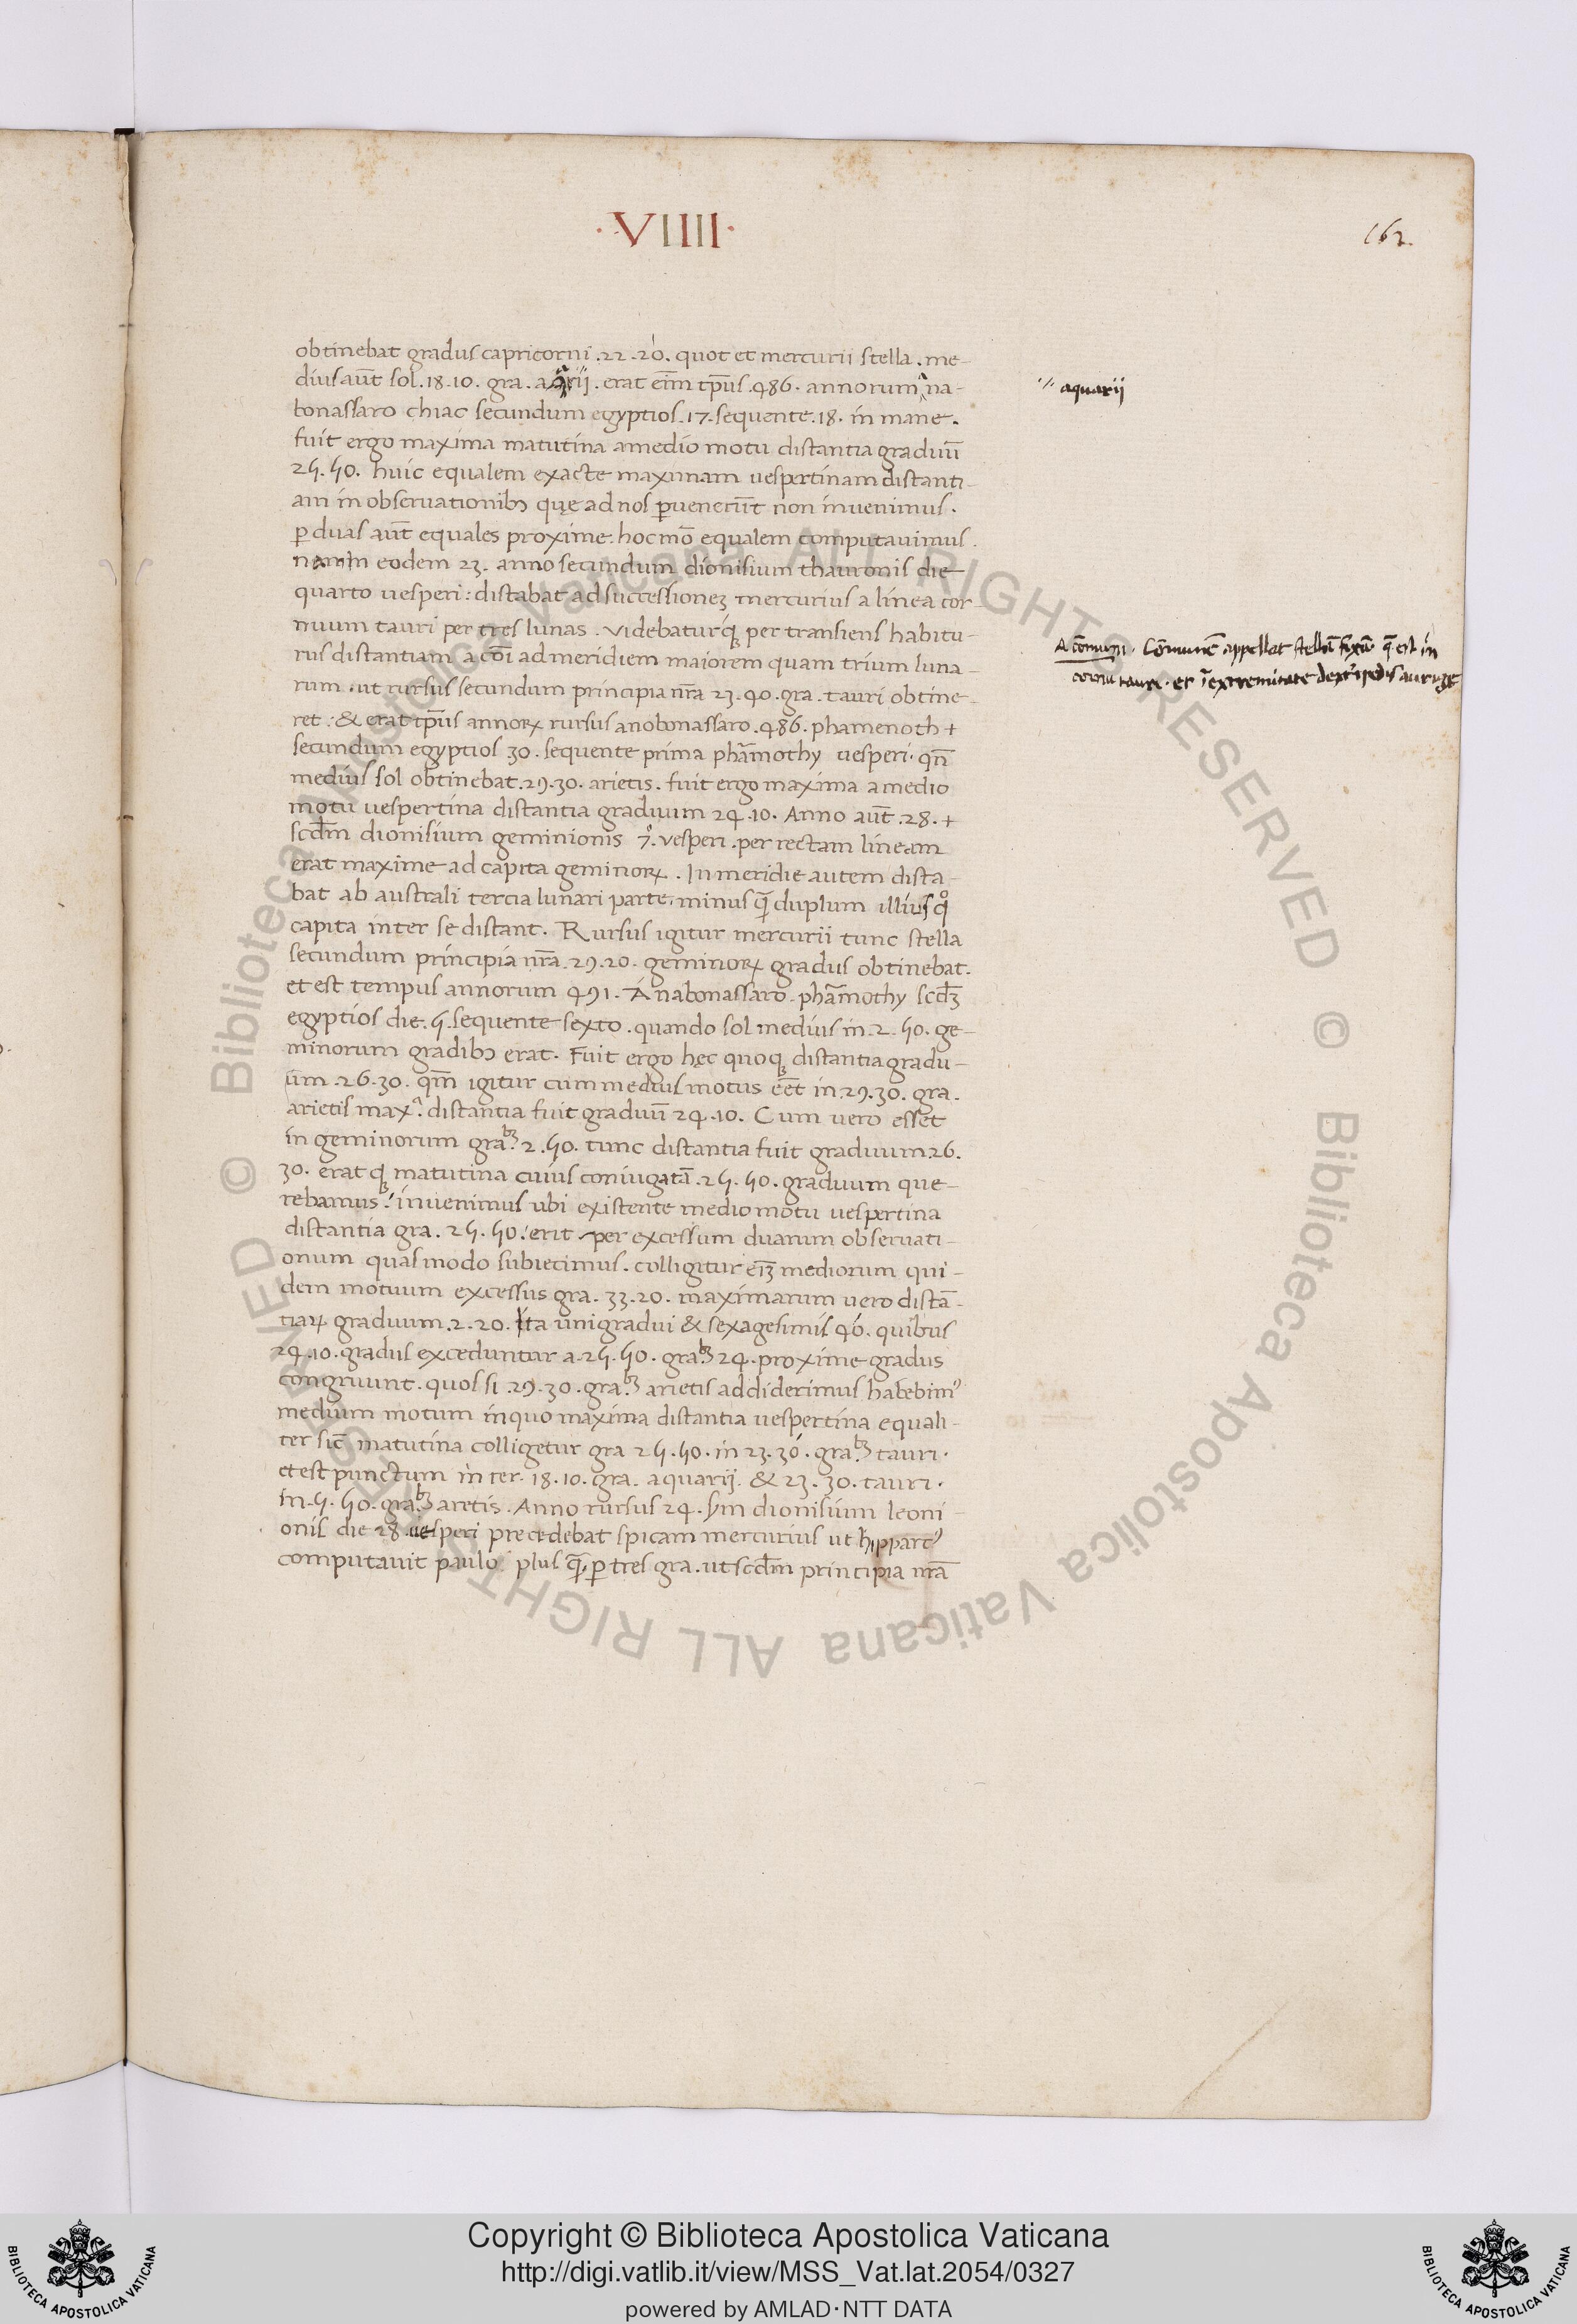 ·VIIII·
162.
obtinebat gradus capricorni .22.20. quot et mercurii stella. me-
dius aut̄ sol .18.10. gra. aq̄rij. erat eim̄ tp̄us .486. annorum a na-
bonassaro chiac secundum egyptios .17. sequente .18. in mane.
fuit ergo maxima matutina a medio motu distantia graduū
25.50. huic equalem exacte maximam uespertinam distanti-
am in obseruationibꝫ quę ad nos ꝑuenerūt non inuenimus.
ꝑ duas aut̄ equales proxime. hoc mō equalem computauimus.
nam in eodem 23. anno secundum dionisium thauronis die
quarto uesperi: distabat ad successionеꝫ mercurius a linea cor-
nuum tauri per tres lunas. Videbaturqꝫ per transiens habitu-
rus distantiam a cōi ad meridiem maiorem quam trium luna-
rum. ut rursus secundum principia nr̄a 23.40. gra. tauri obtine-
ret: & erat tp̄us annoꝝ rursus anobonassaro .486. phamenoth +
secundum egyptios 30. sequente prima phār̄mothy uesperi. qn̄
medius sol obtinebat .29.30. arietis. fuit ergo maxima a medio
motu uespertina distantia graduum 24.10. Anno aut̄ .28. +
scd̄m dionisium geminionis 7°. vesperi. per rectam lineam
erat maxime ad capita geminoꝝ. In meridie autem dista-
bat ab australi tercia lunari parte. minus q̄ꝫ duplum illius qͦ
capita inter se distant. Rursus igitur mercurii tunc stella
secundum principia nr̄a .29.20. geminoꝝ gradus obtinebat.
et est tempus annorum 491. A nabonassaro. phār̄mothy scd̄ꝫ
egyptios die .5. sequente sexto. quando sol medius in .2.50. ge-
minorum gradibꝫ erat. Fuit ergo hęc quoqꝫ distantia gradu-
um .26.30. qm̄ igitur cum medius motus eēt in .29.30. gra.
arietis maxᵃ. distantia fuit graduū 24.10. Cum vero esset
in geminorum graᵇꝫ. 2.50. tunc distantia fuit graduum 26.
30. erat qꝫ matutina cuius coniugatā .25.50. graduum que-
rebamus. inuenimus ubi existente medio motu uespertina
distantia gra. 25.50. erit per excessum duarum obseruati-
onum quas modo subiecimus. colligitur eīꝫ mediorum qui-
dem motuum excessus gra. 33.20. maximarum uero distā-
tiaꝝ graduum .2.20. ita uni gradui & sexagesimis 40. quibus
24.10. gradus exceduntur a .25.50. graᵇꝫ 24. proxime gradus
congruunt. quos si .29.30. graᵇꝫ arietis addiderimus habebim⁹
medium motum in quo maxima distantia uespertina equali-
ter sic̄ matutina colligetur gra 25.50. in 23.30. graᵇꝫ tauri.
et est punctum inter .18.10. gra. aquarij. & 23.30. tauri.
in .5.50. graᵇꝫ aretis. Anno rursus 24. sm̄ dionisium leoni-
onis die 28. uesperi precedebat spicam mercurius ut hipparc⁹
computauit paulo plus q̄ꝫ ꝑ tres gra. ut scd̄m principia nr̄a
aquarij
A cōmuni. Cōmunē appellat stellā fixā q̄ est in
cornu tauri. et ī extremitate dextri pedis aurige
Copyright © Biblioteca Apostolica Vaticana
http://digi.vatlib.it/view/MSS_Vat.lat.2054/0327
powered by AMLAD·NTT DATA
BIBLIOTECA APOSTOLICA VATICANA
BIBLIOTECA APOSTOLICA VATICANA
© Biblioteca Apostolica Vaticana ALL RIGHTS RESERVED
© Biblioteca Apostolica Vaticana ALL RIGHTS RESERVED